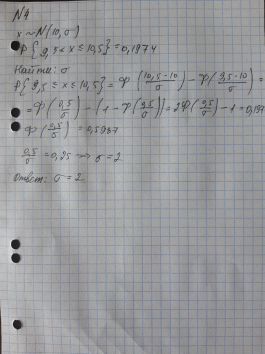 N4
x ~ N(10, σ)
P{9,5 ≤ x ≤ 10,5} = 0,1974
Найти: σ
P{9,5 ≤ x ≤ 10,5} = Φ(10,5-10/σ) - Φ(9,5-10/σ) =
= Φ(0,5/σ) - (1 - Φ(0,5/σ)) = 2Φ(0,5/σ) - 1 = 0,197
Φ(0,5/σ) = 0,5987
0,5/σ = 0,25 => σ = 2
Ответ: σ = 2